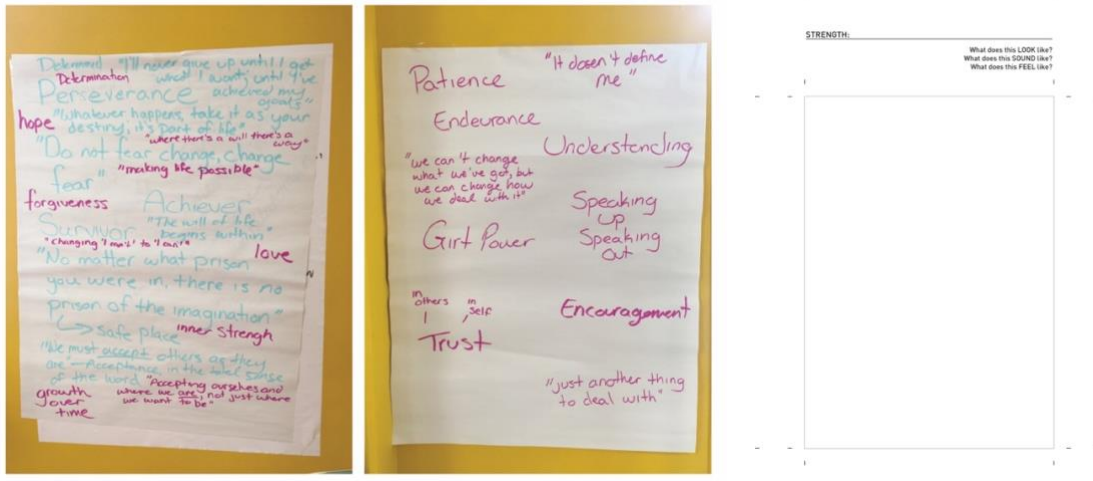 Determined "I'll never give up until I get
Determination what I want, until I've
Perseverance achieved my
goals"
hope "Whatever happens, take it as your
destiny, it's part of life"
"where there's a will there's a
way"
"Do not fear change, change
fear" "making life possible"
forgiveness Achiever
Survivor "The will of life
begins within"
"changing 'I can't' to 'I can'"
love
"No matter what prison
you were in, there is no
prison of the imagination"
safe place inner strengh
"We must accept others as they
are" - Acceptance, in the total sense
of the word "Accepting ourselves and
growth where we are, not just where
over we want to be"
time
Patience
"It dosen't define
me"
Endeurance
Understending
"we can't change
what we've got, but
we can change how
we deal with it"
Speaking
up
Speaking
Out
Girl Power
in others in self
Trust
Encouragement
"just another thing
to deal with"
STRENGTH:
What does this LOOK like?
What does this SOUND like?
What does this FEEL like?